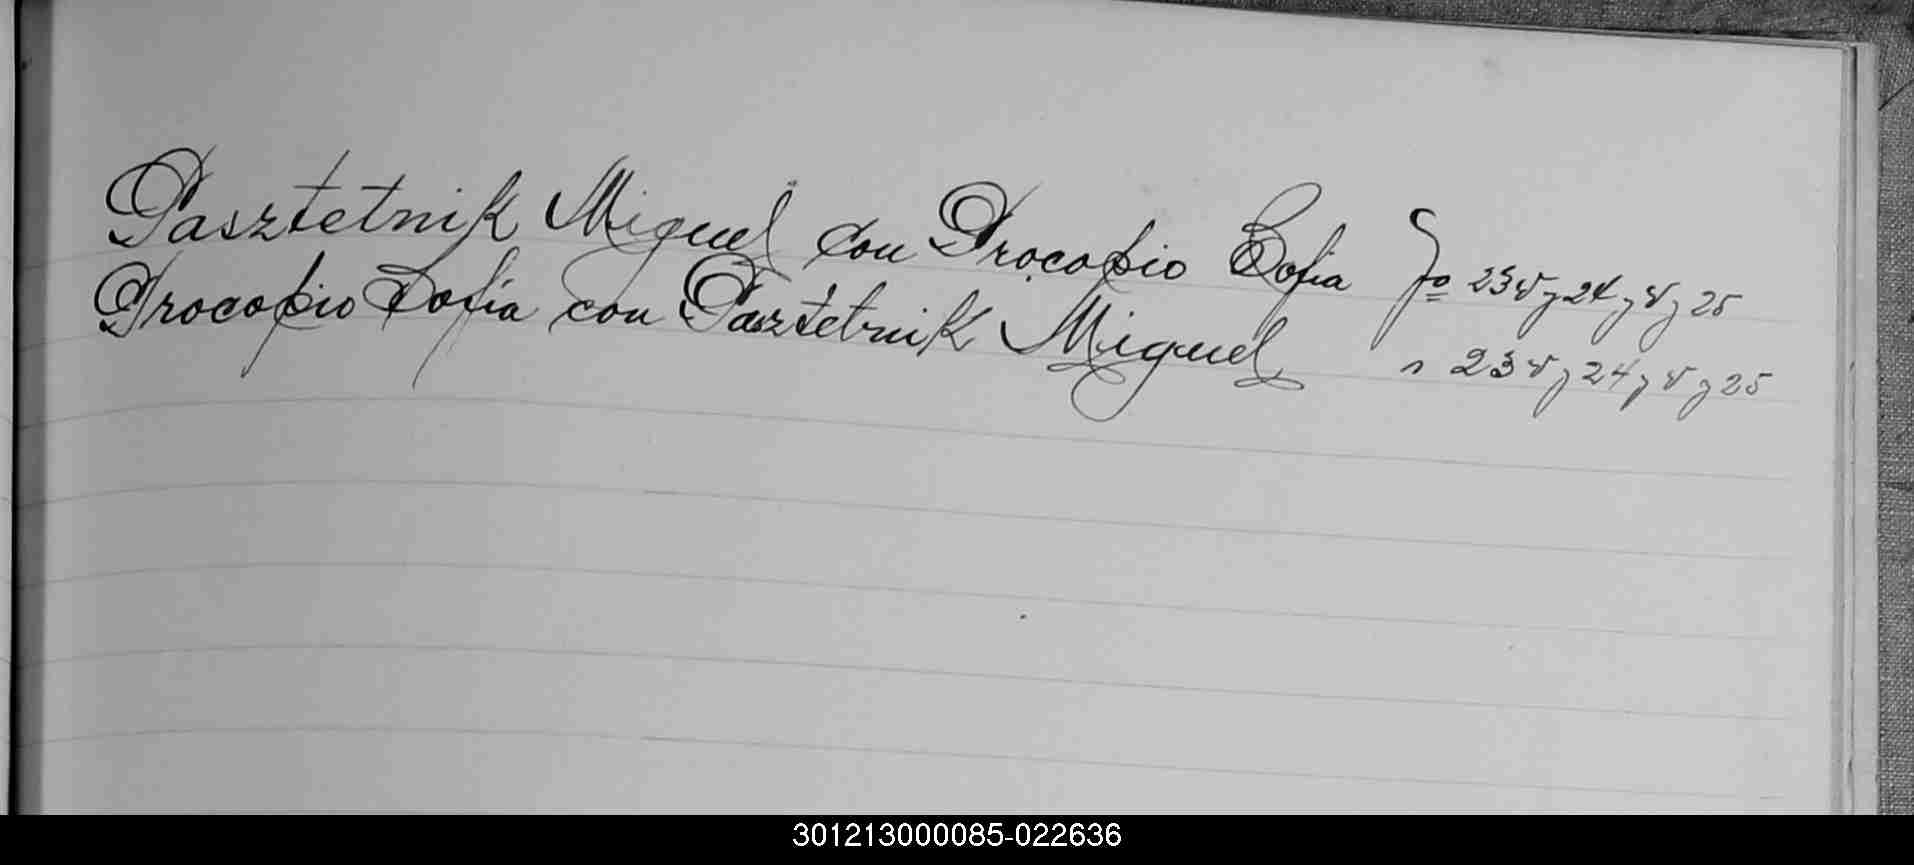 Pasztetnik Miguel con Procopio Sofia fo 23 v y 24 y v y 25
Procopio Sofia con Pasztetnik Miguel " 23 v y 24 y v y 25
301213000085-022636